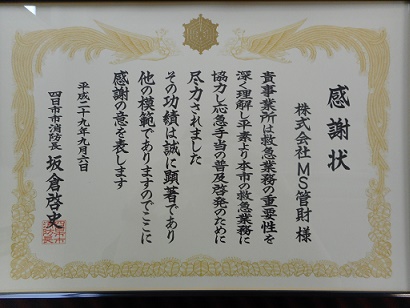 感謝状
株式会社MS管財 様
貴事業所は救急業務の重要性を
深く理解し平素より本市の救急業務に
協力し応急手当の普及啓発のために
尽力されました
その功績は誠に顕著であり
他の模範でありますのでここに
感謝の意を表します
平成二十九年九月六日
四日市市消防長 坂倉啓史